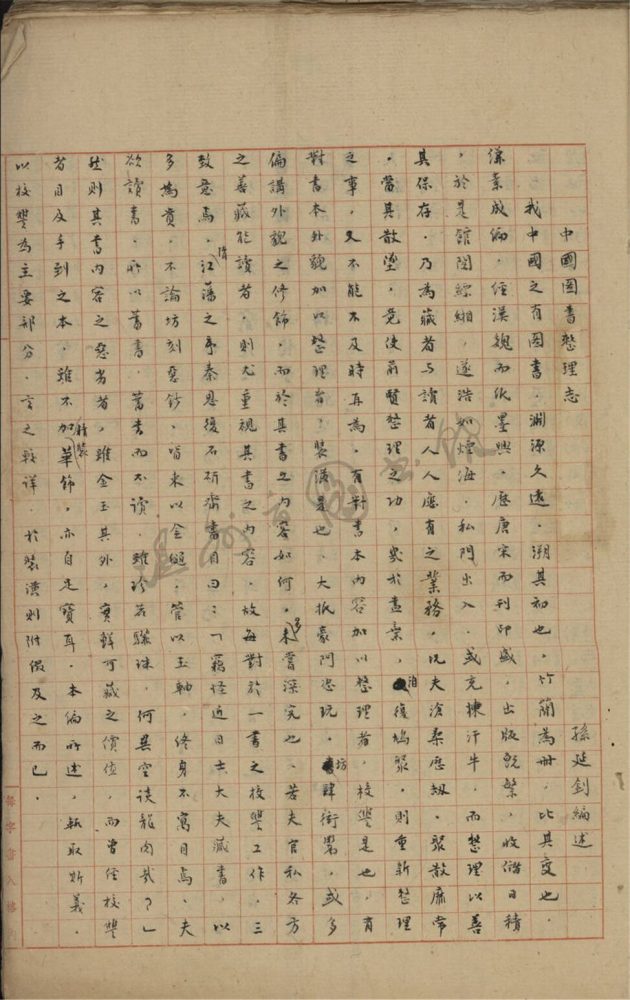 中國圖書整理志
孫延釗編述
我中國之有圖書．淵源久遠．溯其初也．竹簡為冊．比其變也．
縑素成編．經漢魏而紙墨興．歷唐宋而刊印盛．出版既繁．收儲日積
．於是館閣縹緗．遂浩如煙海．私門出入．或充棟汗牛．而整理以善
其保存．乃為藏者与讀者人人應有之業務．況夫滄桑歷刼．聚散靡常
．當其散墜．竟使前賢整理之功．委於盡棄．洎後鳩聚．則重新整理
之事．又不能不及時再為．有對書本內容加以整理者．校讐是也．有
對書本外貌加以整理者．裝潢是也．大抵豪門恣玩．坊肆衒鬻．或多
偏講外貌之修飾．而於其書之內容如何．未嘗深究也．若夫官私各方
之善藏能讀者．則尤重視其書之內容．故每對於一書之校讐工作．三
致意焉．清江藩之序秦恩復石研齋書目曰：「竊怪近日士大夫藏書．以
多為貴．不論坊刻惡鈔．皆束以金繩．管以玉軸．終身不寓目焉．夫
欲讀書．所以蓄書．蓄書而不讀．雖珍若驪珠．何異空談龍肉哉？」
然則其書內容之惡劣者．雖金玉其外．實鮮可藏之價值．而曾經校讐
者目及手到之本．雖不加精裝華飾．亦自足寶耳．本編所述．竊取斯義．
以校讐為主要部分．言之較詳．於裝潢則附假及之而已．
溫州市圖書館